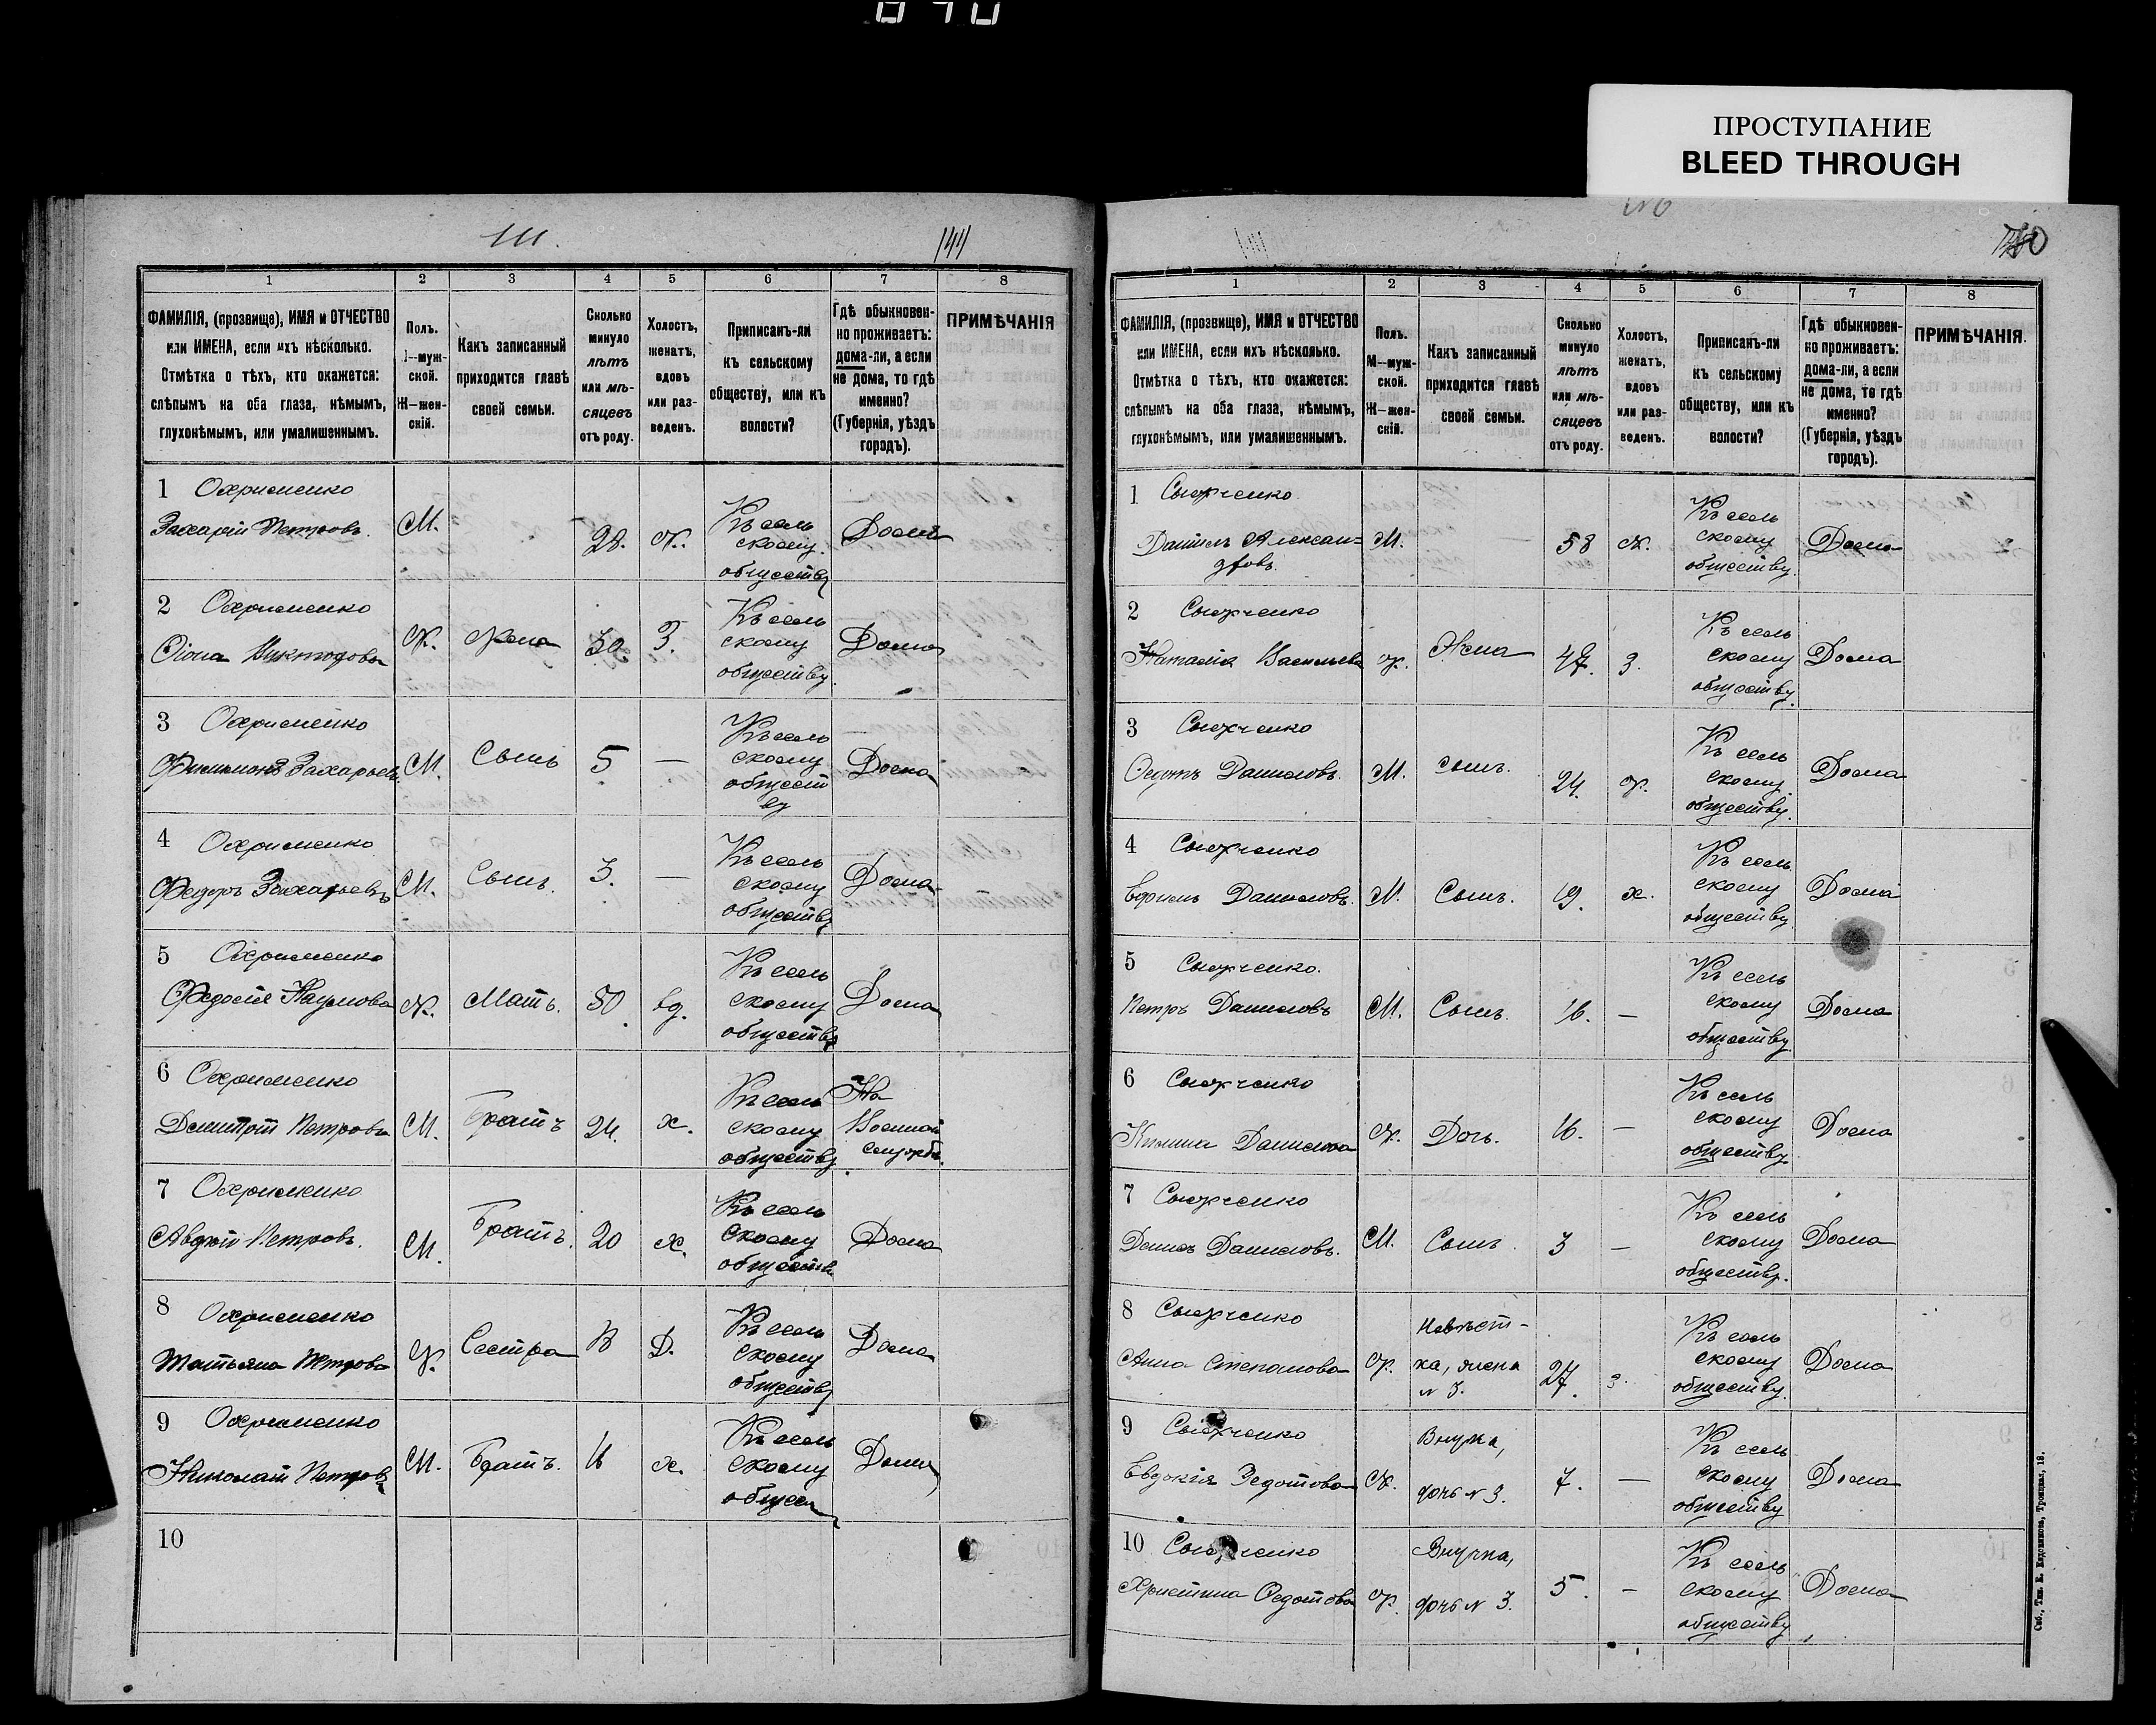 ПРОСТУПАНИЕ
BLEED THROUGH
111.
1 2 3 4 5 6 7 8
ФАМИЛІЯ, (прозвище), ИМЯ и ОТЧЕСТВО или ИМЕНА, если ихъ нѣсколько. Отмѣтка о тѣхъ, кто окажется: слѣпымъ на оба глаза, нѣмымъ, глухонѣмымъ, или умалишеннымъ.
Полъ. М—муж-ской. Ж—жен-скій.
Какъ записанный приходится главѣ своей семьи.
Сколько минуло лѣтъ или мѣ-сяцевъ отъ роду.
Холостъ, женатъ, вдовъ или раз-веденъ.
Приписанъ-ли къ сельскому обществу, или къ волости?
Гдѣ обыкновен-но проживаетъ: дома-ли, а если не дома, то гдѣ именно? (Губернія, уѣздъ городъ).
ПРИМѢЧАНІЯ
1 Охрименко
Захарій Петровъ. М. 28. ж. Къ сель скому обществу Дома
2 Охрименко
Ж. Жена 30 З. Къ сель скому обществу Дома
3 Охрименко
Филимонъ Захарьевъ М. Сынъ 5 — Къ сель скому общест ву Дома
4 Охрименко
Федоръ Захарьевъ М. Сынъ. 3. — Къ сель скому обществу Дома
5 Охрименко
Федосія Наумова Ж. Мать. 50 вд. Къ сель скому обществу Дома
6 Охрименко
Дмитрій Петровъ М. Братъ 24. х. Къ сель скому обществу На Военной службѣ.
7 Охрименко
Авдій Петровъ. М. Братъ. 20 х. Къ сель скому обществу Дома
8 Охрименко
Татьяна Петрова Ж. Сестра Д. Къ сель скому обществу Дома
9 Охрименко
Николай Петровъ М. Братъ. х. Къ сель скому Дома
10
1 2 3 4 5 6 7 8
ФАМИЛІЯ, (прозвище), ИМЯ и ОТЧЕСТВО или ИМЕНА, если ихъ нѣсколько. Отмѣтка о тѣхъ, кто окажется: слѣпымъ на оба глаза, нѣмымъ, глухонѣмымъ, или умалишеннымъ.
Полъ. М—муж-ской. Ж—жен-скій.
Какъ записанный приходится главѣ своей семьи.
Сколько минуло лѣтъ или мѣ-сяцевъ отъ роду.
Холостъ, женатъ, вдовъ или раз-веденъ.
Приписанъ-ли къ сельскому обществу, или къ волости?
Гдѣ обыкновен-но проживаетъ: дома-ли, а если не дома, то гдѣ именно? (Губернія, уѣздъ городъ).
ПРИМѢЧАНІЯ.
1
Данилъ Алексан=дровъ. М. 58 ж. Къ сель скому обществу. Дома
2
Наталія Васильева ж. Жена 47. з. Къ сель скому обществу. Дома
3
Федотъ Даниловъ. М. сынъ. 24. ж. Къ сель скому обществу. Дома
4
Ефимъ Даниловъ. М. Сынъ. 19. х. Къ сель скому обществу Дома
5
Петръ Даниловъ М. Сынъ. 16. — Къ сель скому обществу Дома
6
Данилова Ж. Дочь. 16. — Къ сель скому обществу Дома
7
Денисъ Даниловъ. М. Сынъ. 3 — Къ сель скому обществу. Дома
8
Анна Степанова ж. Невѣст-ка, жена № 3. 27. з. Къ сель скому обществу. Дома
9
Евдокія Федотова Ж. Внучка, дочь № 3. 7. — Къ сель скому обществу Дома
10
Христина Федотова ж. Внучка, дочь № 3. 5. — Къ сель скому обществу Дома